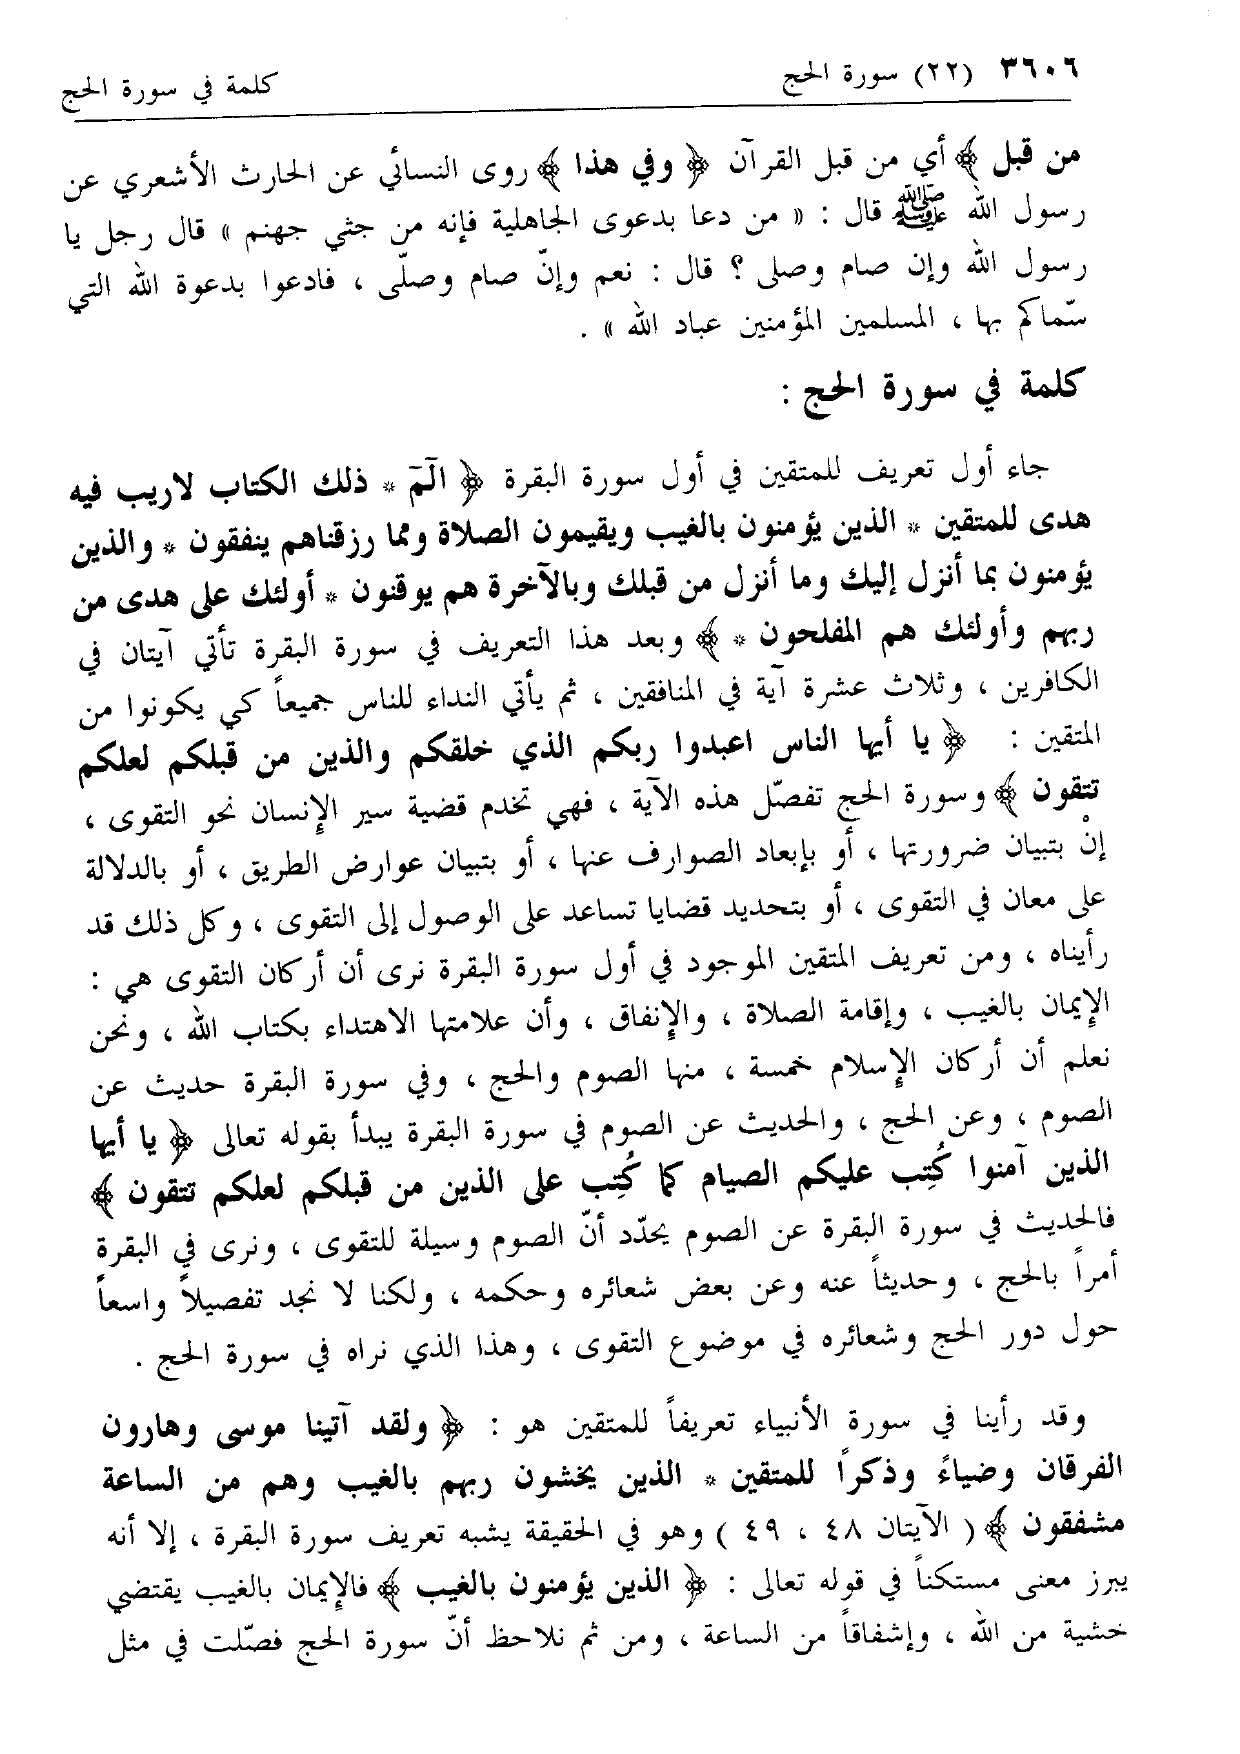 ٣٦٠٦ (٢٢) سورة الحج كلمة في سورة الحج
من قبل ﴾ أي من قبل القرآن ﴿ وفي هذا ﴾ روى النسائي عن الحارث الأشعري عن
رسول الله ﷺ قال : « من دعا بدعوى الجاهلية فإنه من جثي جهنم » قال رجل يا
رسول الله وإن صام وصلى ؟ قال : نعم وإنّ صام وصلّى ، فادعوا بدعوة الله التي
سّماكم بها ، المسلمين المؤمنين عباد الله » .
كلمة في سورة الحج :
جاء أول تعريف للمتقين في أول سورة البقرة ﴿ الٓمٓ * ذلك الكتاب لاريب فيه
هدى للمتقين * الذين يؤمنون بالغيب ويقيمون الصلاة ومما رزقناهم ينفقون * والذين
يؤمنون بما أنزل إليك وما أنزل من قبلك وبالآخرة هم يوقنون * أولئك على هدى من
ربهم وأولئك هم المفلحون * ﴾ وبعد هذا التعريف في سورة البقرة تأتي آيتان في
الكافرين ، وثلاث عشرة آية في المنافقين ، ثم يأتي النداء للناس جميعاً كي يكونوا من
المتقين : ﴿ يا أيها الناس اعبدوا ربكم الذي خلقكم والذين من قبلكم لعلكم
تتقون ﴾ وسورة الحج تفصّل هذه الآية ، فهي تخدم قضية سير الإنسان نحو التقوى ،
إنْ بتبيان ضرورتها ، أو بإبعاد الصوارف عنها ، أو بتبيان عوارض الطريق ، أو بالدلالة
على معان في التقوى ، أو بتحديد قضايا تساعد على الوصول إلى التقوى ، وكل ذلك قد
رأيناه ، ومن تعريف المتقين الموجود في أول سورة البقرة نرى أن أركان التقوى هي :
الإيمان بالغيب ، وإقامة الصلاة ، والإنفاق ، وأن علامتها الاهتداء بكتاب الله ، ونحن
نعلم أن أركان الإسلام خمسة ، منها الصوم والحج ، وفي سورة البقرة حديث عن
الصوم ، وعن الحج ، والحديث عن الصوم في سورة البقرة يبدأ بقوله تعالى ﴿ يا أيها
الذين آمنوا كُتب عليكم الصيام كما كُتِب على الذين من قبلكم لعلكم تتقون ﴾
فالحديث في سورة البقرة عن الصوم يحدّد أنّ الصوم وسيلة للتقوى ، ونرى في البقرة
أمراً بالحج ، وحديثاً عنه وعن بعض شعائره وحكمه ، ولكنا لا نجد تفصيلاً واسعاً
حول دور الحج وشعائره في موضوع التقوى ، وهذا الذي نراه في سورة الحج .
وقد رأينا في سورة الأنبياء تعريفاً للمتقين هو : ﴿ ولقد آتينا موسى وهارون
الفرقان وضياءً وذكراً للمتقين * الذين يخشون ربهم بالغيب وهم من الساعة
مشفقون ﴾ ( الآيتان ٤٨ ، ٤٩ ) وهو في الحقيقة يشبه تعريف سورة البقرة ، إلا أنه
يبرز معنى مستكناً في قوله تعالى : ﴿ الذين يؤمنون بالغيب ﴾ فالإيمان بالغيب يقتضي
خشية من الله ، وإشفاقاً من الساعة ، ومن ثم نلاحظ أنّ سورة الحج فصّلت في مثل